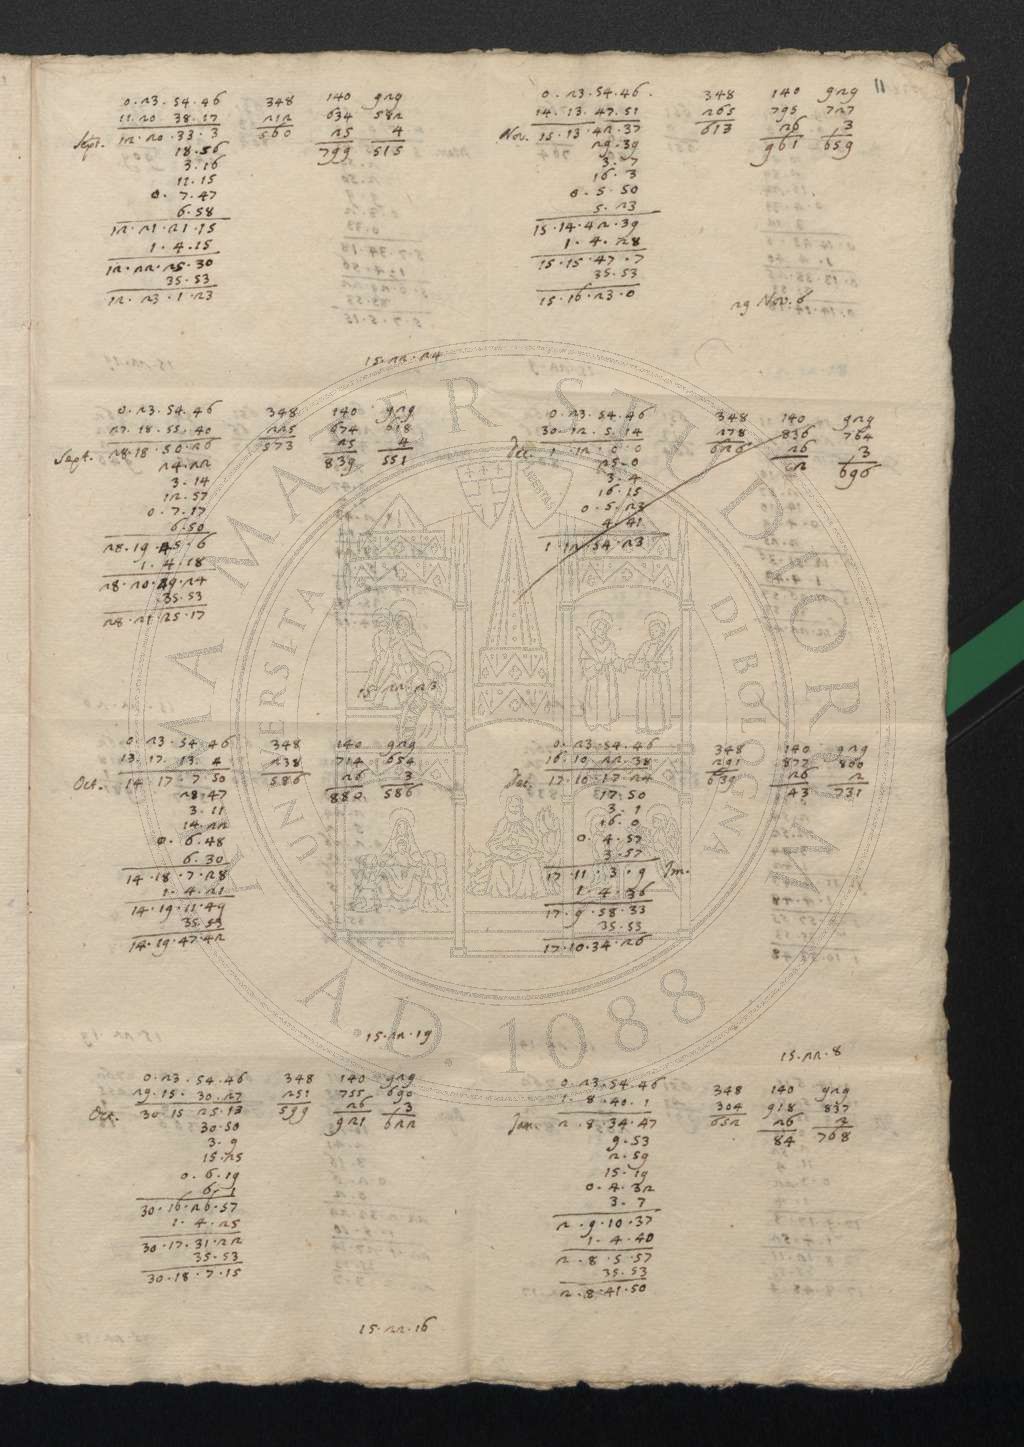 11
0.23.54.46 348 140 929
11.20.38.17 212 634 582
Sept. 12.20.33.3 560 25 4
18.56 799 515
3.16
11.15
0.7.47
6.58
12.21.21.15
1.4.15
12.22.25.30
35.53
12.23.1.23
15.22.24
0.23.54.46 348 140 929
27.18.55.40 225 674 618
Sept. 28.18.50.26 573 25 4
24.22 839 551
3.14
12.57
0.7.17
6.50
28.19.45.6
1.4.18
28.20.49.24
35.53
28.21.25.17
15.22.23
0.23.54.46 348 140 929
13.17.13.4 238 714 654
Oct. 14.17.7.50 586 26 3
28.47 880 586
3.11
14.22
0.6.48
6.30
14.18.7.28
1.4.21
14.19.11.49
35.53
14.19.47.42
15.22.19
0.23.54.46 348 140 929
29.15.30.27 251 755 690
Oct. 30.15.25.13 599 26 3
30.50 921 622
3.9
15.25
0.6.19
6.1
30.16.26.57
1.4.25
30.17.31.22
35.53
30.18.7.15
15.22.16
0.23.54.46. 348 140 929
14.13.47.51 265 795 727
Nov. 15.13.42.37 613 26 3
29.39 961 659
3.7
16.3
0.5.50
5.23
15.14.42.39
1.4.28
15.15.47.7
35.53
15.16.23.0
29 Nov. 6
0.23.54.46 348 140 929
30.12.5.14 278 836 764
Dec. 1.12.0.0 626 26 3
25.0 02 696
3.4
16.15
0.5.23
4.41
1.12.54.23
0.23.54.46 348 140 929
16.10.22.38 291 877 800
Dec. 17.10.17.24 639 26 2
17.50 43 731
3.1
16.0
0.4.57
3.57
17.11.3.9 Im.
1.4.36
17.9.58.33
35.53
17.10.34.26
15.22.8
0.23.54.46 348 140 929
1.8.40.1 304 918 837
Jan. 2.8.34.47 652 26 2
9.53 84 768
2.59
15.19
0.4.32
3.7
2.9.10.37
1.4.40
2.8.5.57
35.53
2.8.41.50
ALMA MATER STUDIORUM
UNIVERSITÀ DI BOLOGNA
A.D. 1088